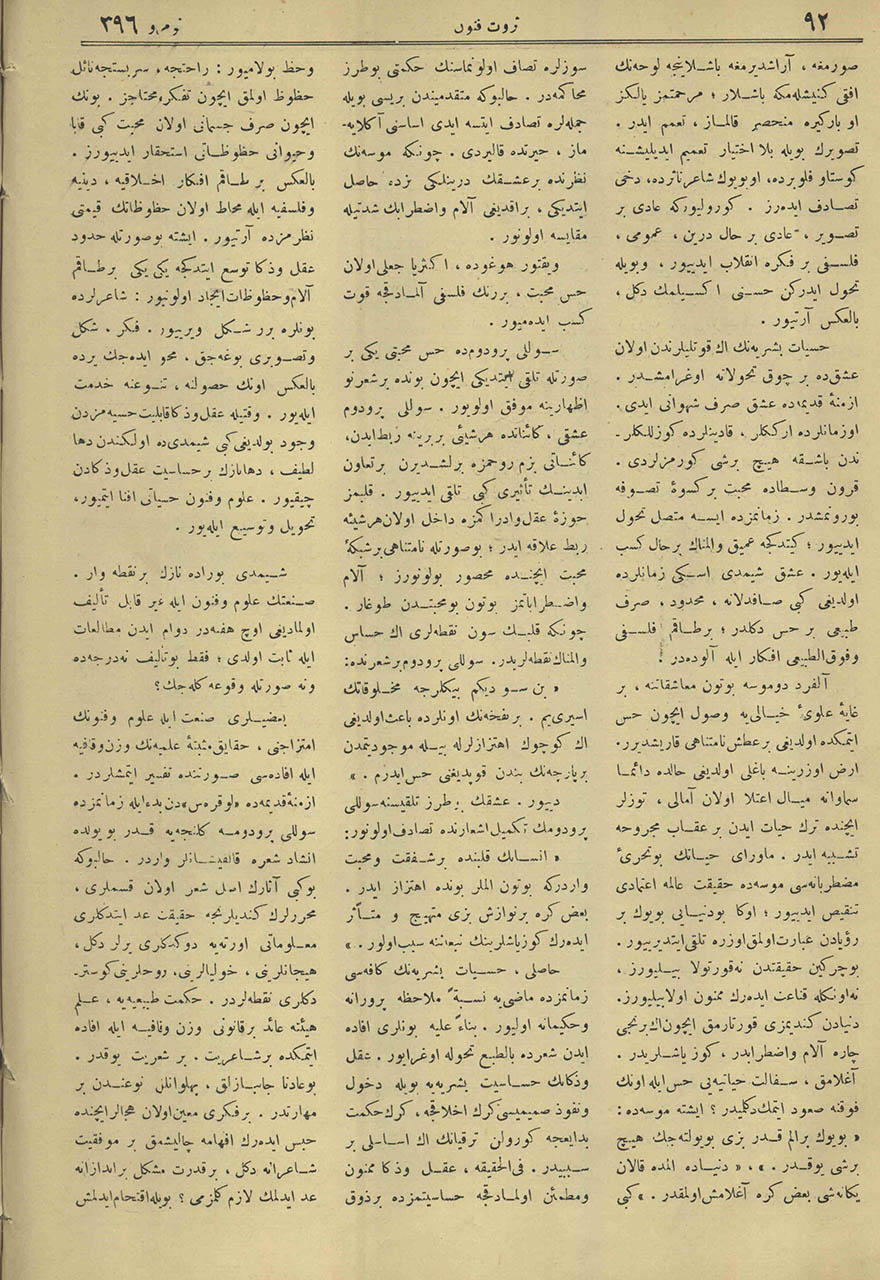 ۹۲
ثروت فنون
نومرو ۳۹۶
صورمغه ، آراشدیرمغه باشلاینجه لوحه‌نك
افقی کنیشله‌مکه باشلار ؛ مرحمتمز یالکز
او بارکیره منحصر قالماز ، تعمم ایدر .
تصویرك بویله بلا اختیار تعمیم ایدیلیشنه
کوستاو فلوبرده ، اوبویوك شاعر ناثرده ، دخی
تصادف ایده‌رز . کورولیورکه عادی بر
تصویر ، عادی بر حال درین ، عمومی ،
فلسفی بر فکره انقلاب ایدییور ، وبویله
تحول ایدرکن حسنی اکسیلمك دکل ،
بالعکس آرتییور .
حسیات بشریه‌نك اك قوتلیلرندن اولان
عشقده بر چوق تحولاته اوغرامشدر .
ازمنهٔ قدیمه‌ده عشق صرف شهوانی ایدی .
اوزمانلرده ارککلر ، قادینلرده کوزللکلر-
ندن باشقه هیچ برشی کورمزلردی .
قرون وسطاده محبت برکسوهٔ تصوفه
بورونمشدر . زمانمزده ایسه متصل تحول
ایدییور ؛ کیتدکجه عمیق والمناك برحال کسب
ایله‌یور . عشق شیمدی اسکی زمانلرده
اولدیغی کبی صافدلانه ، محدود ، صرف
طبیعی بر حس دکلدر ؛ برطاقم فلسفی
وفوق‌الطبیعی افکار ایله آلوده‌در !
آلفرد دوموسه بوتون معاشقاتنه ، بر
غایهٔ علوی‌ٔ خیالی‌یه وصول ایچون حس
ایتمکده اولدیغی برعطش نامتناهی قاریشدیرر.
ارض اوزرینه باغلی اولدیغی حالده دائما
سماواته میال اعتلا اولان آمالی ، توزلر
ایچنده ترك حیات ایدن بر عقاب مجروحه
تشبیه ایدر . ماورای حیاتك بوتحریٔ
مضطربانه‌سی موسه‌ده حقیقت عالمه اعتمادی
تنقیص ایدییور ؛ اوکا بودنیایی بویوك بر
رؤیادن عبارت اولمق اوزره تلقی ایتدیرییور .
بوچرکین حقیقتدن نه‌قورتولا بیلیورز ،
نه‌اونکله قناعت ایده‌رك ممنون اولابیلیورز.
دنیادن کندیمزی قورتارمق ایچون‌اك برنجی
چاره آلام واضطرابدر ، کوز یاشلریدر .
آغلامق ، سفالت حیاتیه‌یی حس‌ایله اونك
فوقنه صعود ایتمك‌دکلیدر ؟ ایشته موسه‌ده :
« بویوك برالم قدر بزی بویولته‌جك هیچ
برشی یوقدر . » ، « دنیاده المده قالان
یکانه‌شی بعض کره آغلامش اولمقدر . » کبی
سوزلره تصاف اولونماسنك حکمتی بوطرز
محاکمه‌در . حالبوکه متقدمیندن بریسی بویله
جمله‌لره تصادف ایتسه ایدی اساسنی آکلایه-
ماز ، حیرتده قالیردی . چونکه موسه‌نك
نظرنده برعشقك درینلکی بزده حاصل
ایتدیکی ، براقدیغی آلام واضطرابك شدتیله
مقایسه اولونور .
ویقتور هوغوده ، اکثریا جعلی‌اولان
حس محبت ، بررنك فلسفی آلمادقجه قوت
کسب ایده‌میور .
سوللی پرودوم‌ده حس محبتی یکی بر
صورتله تلقی ایتدیکی ایچون بونده برشعرنو
اظهارینه موفق اولویور . سوللی پرودوم
عشقی ، کائناتده هرشیئی بربرینه ربط‌ایدن،
کائناتی بزم روحمزه برلشدیرن برتعاون
ابدینك تأثیری کبی تلقی ایدییور . قلبمز
حوزهٔ عقل‌وادراکمزه داخل اولان‌هرشیئه
ربط علاقه ایدر ؛ بوصورتله نامتناهی برشبکهٔ
محبت ایچنده محصور بولونورز ؛ آلام
واضطراباتمز بوتون بومحبتدن طوغار .
چونکه قلبك سوك نقطه‌لری اك حساس
والمناك نقطه‌لریدر . سوللی پرودوم برشعرنده:
« بن سودیکم بیکلرجه مخلوقاتك
اسیری‌یم . برنفخه‌نك اونلرده باعث‌اولدیغی
اك کوچوك اهتزازلرله بیله موجودیتمدن
برپارچه‌نك بندن قوپدیغنی حس‌ایدرم . »
دییور . عشقك بوطرز تلقیسنه‌سوللی
پرودومك تکمیل‌اشعارنده تصادف‌اولونور:
« انسانك قلبنده برشفقت ومحبت
واردرکه بوتون الملر بونده اهتزاز ایدر .
بعض کره برنوازش بزی متهیج و متأثر
ایده‌رك کوزیاشلرینك نبعاننه سبب‌اولور . »
حاصلی ، حسیات بشریه‌نك کافه‌سی
زمانمزده ماضی‌یه نسبةً ملاحظه پرورانه
وحکیمانه اولیور . بناءً علیه بونلری افاده
ایدن شعرده بالطبع تحوله اوغرایور . عقل
وذکانك حساسیت بشریه‌یه بویله دخول
ونفوذ صمیمیسی کرك اخلاقجه ، کرك حکمت
بدایعجه کورولن ترقیاتك اك اساسلی بر
سببیدر . فی‌الحقیقه ، عقل وذکا ممنون
ومطمئن اولمادقجه حساسیتمزده برذوق
وحظ بولامیور : راحتجه ، سربستجه‌نائل
حظوظ اولمق ایچون تفکره محتاجز . بونك
ایچون صرف جسمانی اولان محبت کبی قابا
وحیوانی حظوظاتی استحقار ایدییورز .
بالعکس برطاقم افکار اخلاقیه ، دینیه
وفلسفیه ایله محاط اولان حظوظاتك قیمتی
نظرمزده آرتییور . ایشته بوصورتله حدود
عقل وذکا توسع ایتدکجه یکی یکی برطاقم
آلام‌وحظوظات ایجاد اولونیور : شاعرلرده
بونلره برر شکل ویرییور . فکر ، شکل
وتصویری بوغه‌جق ، محو ایده‌جك یرده
بالعکس اونك حصولنه ، تنوعنه خدمت
ایله‌یور . وقتیله عقل وذکا قابلیت حسیه‌مزدن
وجود بولدیغی کبی شیمدی‌ده اولکندن دها
لطیف ، دها نازك برحساسیت عقل وذکادن
چیقیور . علوم وفنون حسیاتی افنا ایتمیور،
تحویل وتوسیع ایله‌یور .
شیمدی بوراده نازك برنقطه وار .
صنعتك علوم وفنون ایله غیر قابل تألیف
اولمادیغی اوچ هفته‌در دوام ایدن مطالعات
ایله ثابت اولدی ؛ فقط بوتألیف نه‌درجه‌ده
ونه صورتله وقوعه کله‌جك؟
بعضیلری صنعت ایله علوم وفنونك
امتزاجنی ، حقایق مثبتهٔ علمیه‌نك وزن‌وقافیه
ایله افاده‌سی صورتنده تفسیر ایتمشلردر .
ازمنهٔ قدیمه‌ده « لوقره‌س » دن‌بدء‌ایله زمانمزده
سوللی پرودومه کلنجه‌یه قدر بویولده
انشاد شعره قالقیشانلر واردر . حالبوکه
بوکبی آثارك اصل شعر اولان قسملری ،
محررلرك کندیلرنجه حقیقت عد ایتدکلری
معلوماتی اورته‌یه دوکدکلری یرلر دکل ،
هیجانلرینی ، خولیالرینی، روحلرینی‌کوستر-
دکلری نقطه‌لردر . حکمت طبیعیه‌یه ، علم
هیئته عائد برقانونی وزن وقافیه ایله افاده
ایتمکده برشاعریت ، بر شعریت یوقدر .
بوعادتا جانبازلق ، پهلوانلق نوعندن بر
مهارتدر . برفکری معین‌اولان هجالر‌ایچنده
حبس ایده‌رك افهامه چالیشمق بر موفقیت
شاعرانه دکل ، برقدرت مشکل براندازانه
عد ایدلمك لازم کلمزمی ؟ بویله اقتحام‌ایدلمش